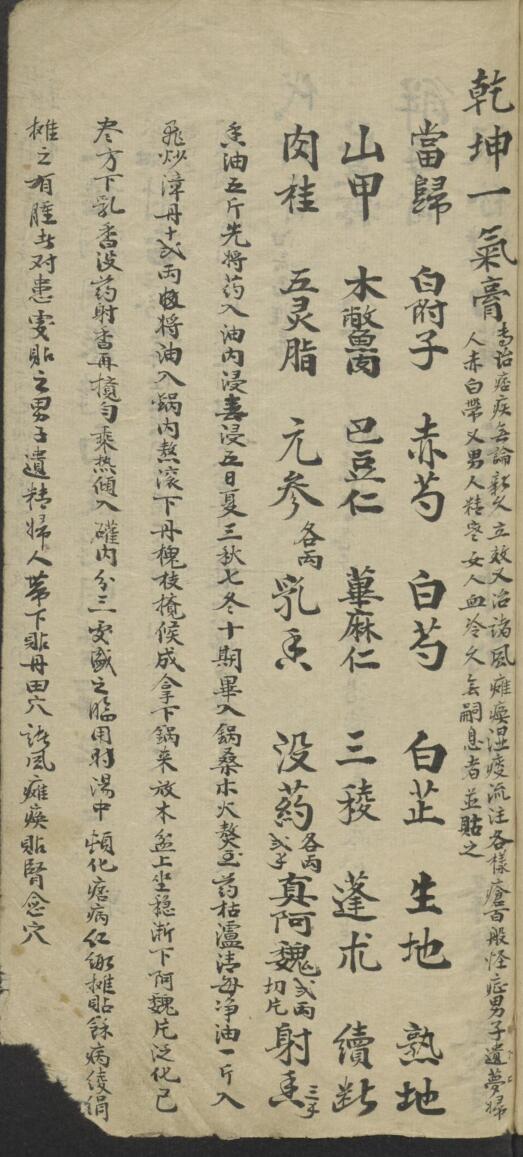 乾坤一氣膏
專治痞疾無論新久立效又治諸風癱瘓湿痰流注各樣瘡百般怪症男子遺夢婦
人赤白帶又男人精寒女人血冷久無嗣息者並貼之
當歸 白附子 赤芍 白芍 白芷 生地 熟地
山甲 木鱉肉 巴豆仁 萆麻仁 三稜 蓬朮 續断
肉桂 五灵脂 元参各丙 乳香 没药各丙弍子 真阿魏弍丙切片 射香三子
香油五斤先將药入油内浸春浸五日夏三秋七冬十期畢入锅桑木火熬至药枯瀘清每净油一斤入
飛炒漳丹十弍两 將油入锅内熬滚下丹槐枝攪候成拿下锅来放木盆上坐稳渐下阿魏片泛化已
尽方下乳香没药射香再攪匀乘热傾入罐内分三处盛之临用时湯中頓化痞病红 摊貼餘病綾绢
摊之有腫者对患处貼之男子遺精婦人帶下貼丹田穴諸風癱瘓貼腎俞穴